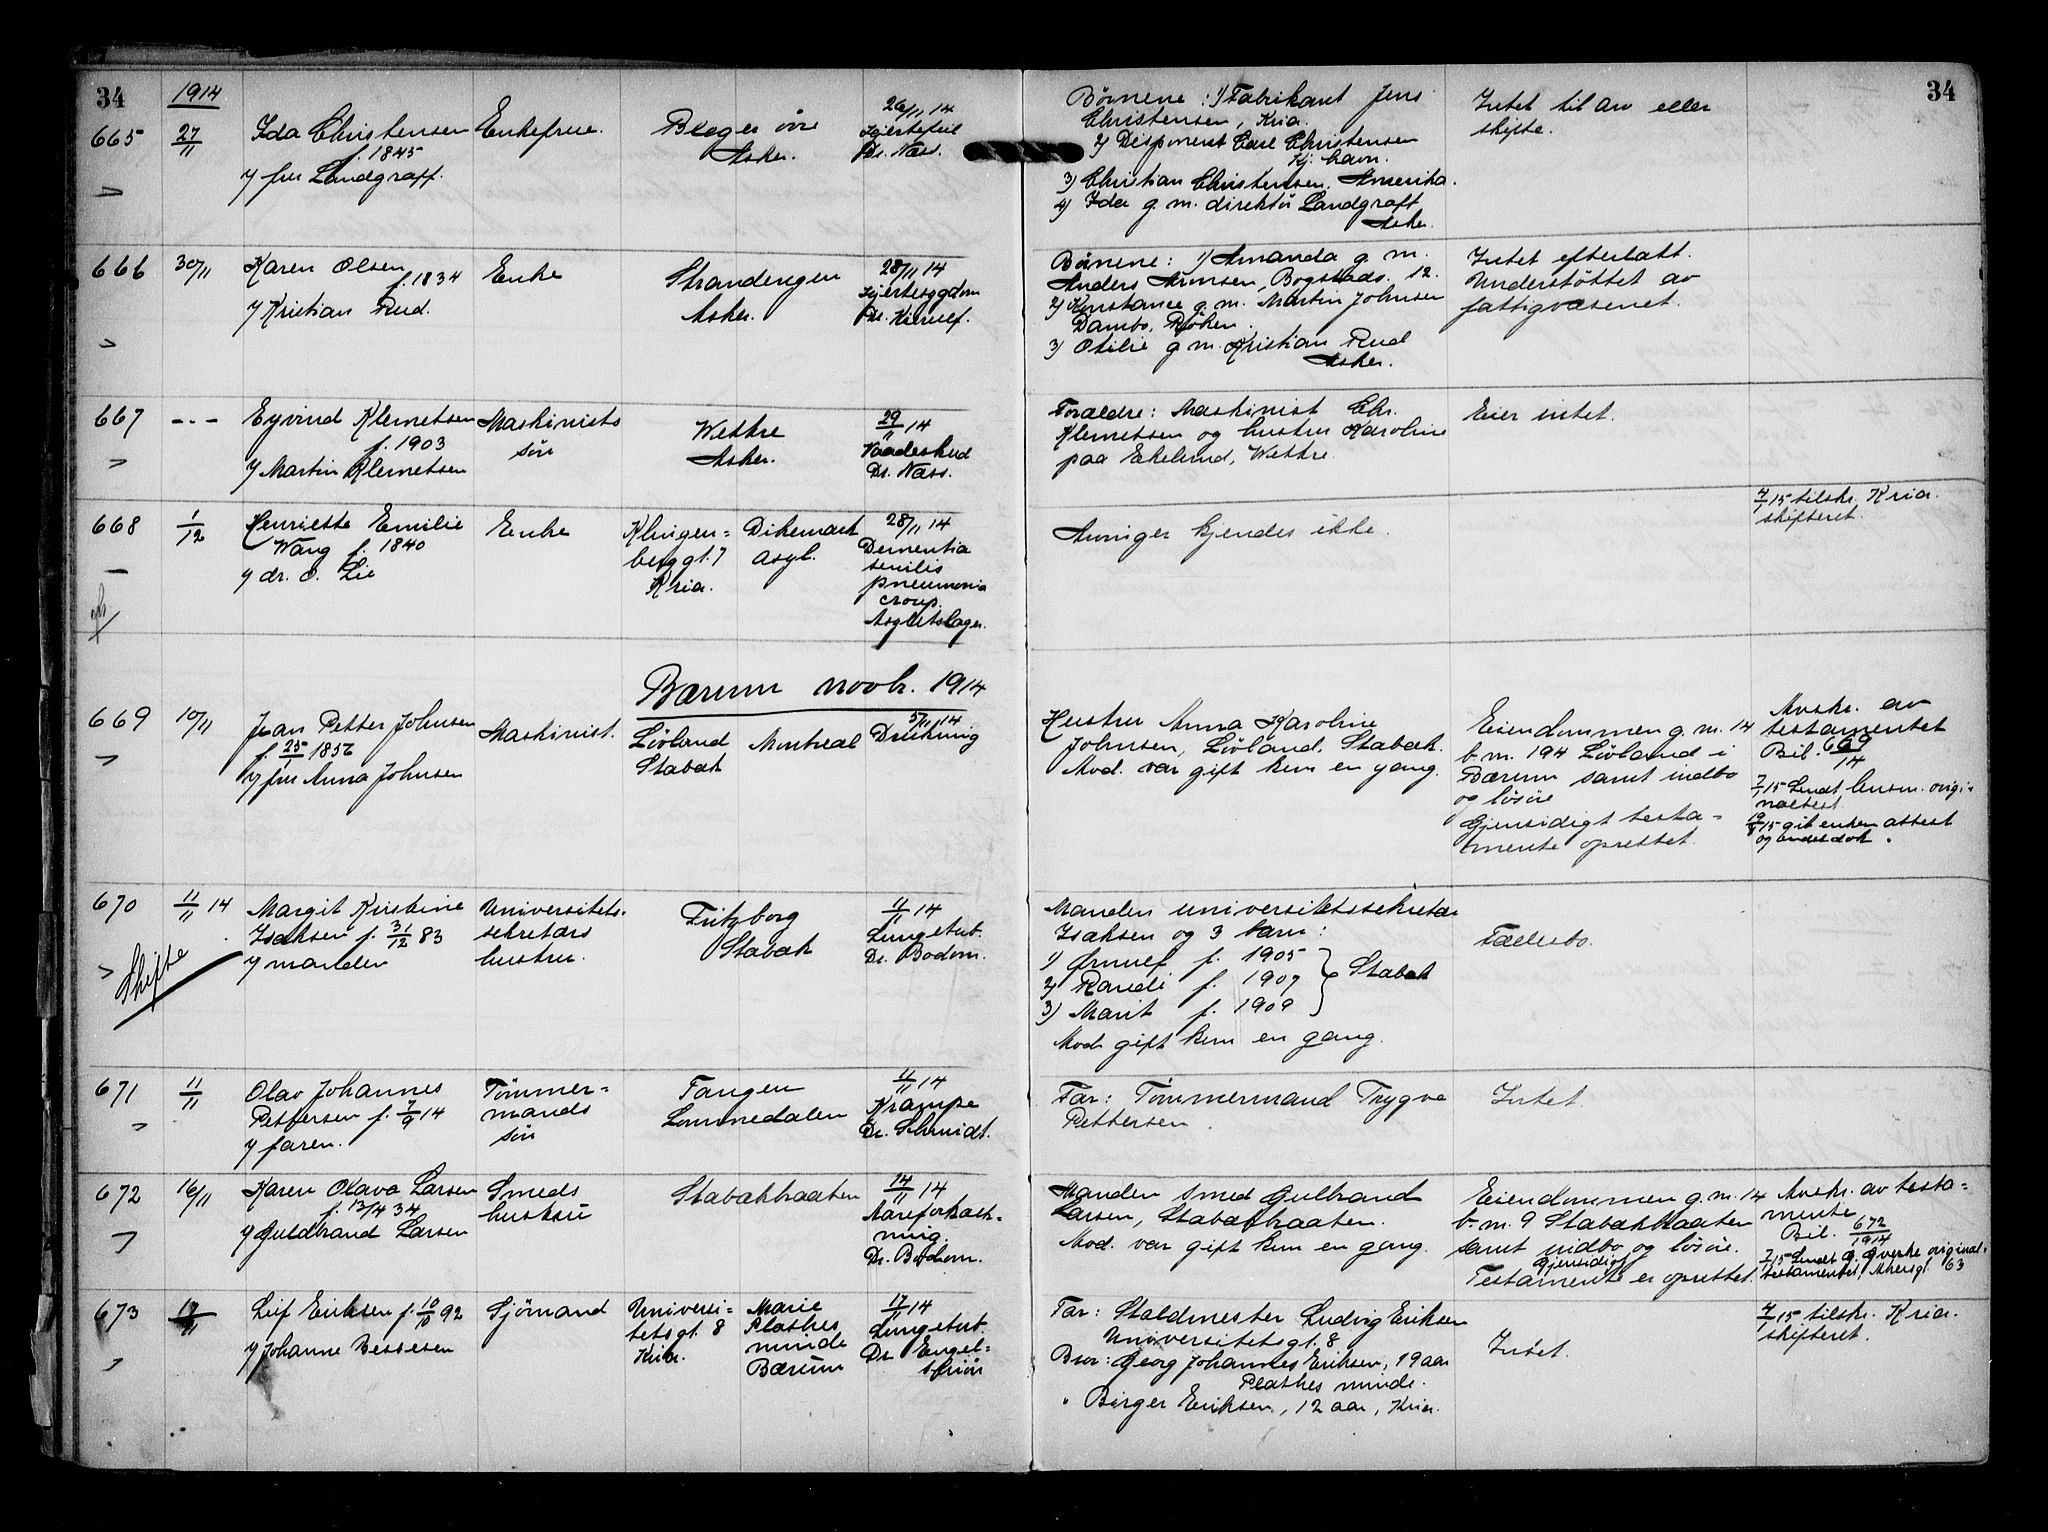 34
1914
34
665
27/11
Ida Christensen
f. 1845
v/ fru Landgraff.
Enkefrue.
Asker.
26/11 14
Hjertefeil
Dr. Næss.
Børnene: 1) Fabrikant Jens
Christensen, Kria.
2) Disponent Carl Christensen
Kj.havn.
3) Christian Christensen. Amerika.
4) Ida g. m. direktör Landgraff
Asker.
Intet til arv eller
skifte.
666
30/11
Karen Olsen
f. 1834
v/ Kristian Rud.
Enke
Strandengen
Asker.
28/11 14
Hjertesygdom
Dr. Kierulf.
Börnene: 1) Amanda g. m.
Anders Arntsen, Bogstadv. 12.
2) Konstance g. m. Martin Johnsen
Dambo, Röken.
3) Otilie g m. Kristian Rud
Asker.
Intet efterlatt.
Understöttet av
fattigvæsenet.
667
- - -
Eyvind Klemetsen
f. 1903
v/ Martin Klemetsen
Maskinists
sön
Wettre
Asker.
29/11 14
Vaadeskud
Dr. Næss.
Forældre: Maskinist Chr.
Klemetsen og hustru Karoline
paa Ekelund, Wettre.
Eier intet.
668
1/12
Henriette Emilie
Wang f. 1840
v/ dr. O. Lie
Enke
Klingen=
berggt. 7
Kria.
Dikemark
asyl.
28/11 14
Dementia
senilis
pneumonia
croup.
Asyletslæge.
Arvinger kjendes ikke.
4/1 15 tilskr. Kria.
skifteret.
Bærum novbr. 1914
669
10/11
Jean Petter Johnsen
f. 25/1 1856
v/ fru Anna Johnsen
Maskinist.
Lövland
Stabæk
Montreal
5/11 14
Drukning
Hustru Anna Karoline
Johnsen, Lövland, Stabæk.
Avd. var gift kun en gang.
Eiendommen g. m. 14
b. m. 194 Lövland i
Bærum samt indbo
og lösöre
Gjensidigt testa=
mente oprettet.
Avskr. av
testamentet
Bil. 669/14
7/1 15 Sendt lensm. origi=
naltest.
19/8 15 git enken attest
670
11/11 14
Margit Kristine
Isaksen f. 31/12 83
v/ manden
Skifte
Universitets-
sekretærs
hustru.
Fritzborg
Stabæk
11/11 14
Lungetub.
Dr. Bodom.
Manden universitetssekretær
Isaksen og 3 barn:
1) Ørnulf f. 1905
2) Randi f. 1907
3) Marit f. 1909
Stabæk
Avd. gift kun en gang.
Fællesbo.
671
11/11
Olav Johannes
Pettersen f. 7/9 14
v/ faren.
Tömmer=
mands
sön
Tangen
Lommedalen
11/11 14
Krampe
Dr. Schmidt.
Far: Tömmermand Trygve
Pettersen.
Intet
672
16/11
Karen Olava Larsen
f. 13/4 34
v/ Guldbrand Larsen
Smeds
hustru
Stabækbraaten
14/11 14
Aareforkalk=
ning.
Dr. Bodom.
Manden Smed Gulbrand
Larsen, Stabækbraaten.
Avd. var gift kun en gang.
Eiendommen g. m. 14
b. m. 9 Stabækbraaten
samt indbo og lösöre.
Gjensidig
Testamente er oprettet.
Avskr. av testa=
mente
Bil. 672/1914
7/1 15 Sendt G. Gverke original-
testamentet, Akersgt. 63
673
17/11
Leif Eriksen f. 10/10 92
v/ Johanne Bessesen
Sjömand
Universi=
tetsgt. 8
Kria.
Marie
Plathes
minde
Bærum
17/11 14
Lungetub.
Dr. Engel-
schiön
Far: Staldmester Ludvig Eriksen
Universitetsgt. 8.
Bror: Georg Johannes Eriksen, 19 aar
Plathes minde.
" Birger Eriksen, 12 aar, Kria.
Intet.
4/1 15 tilskr. Kria.
skifteret.